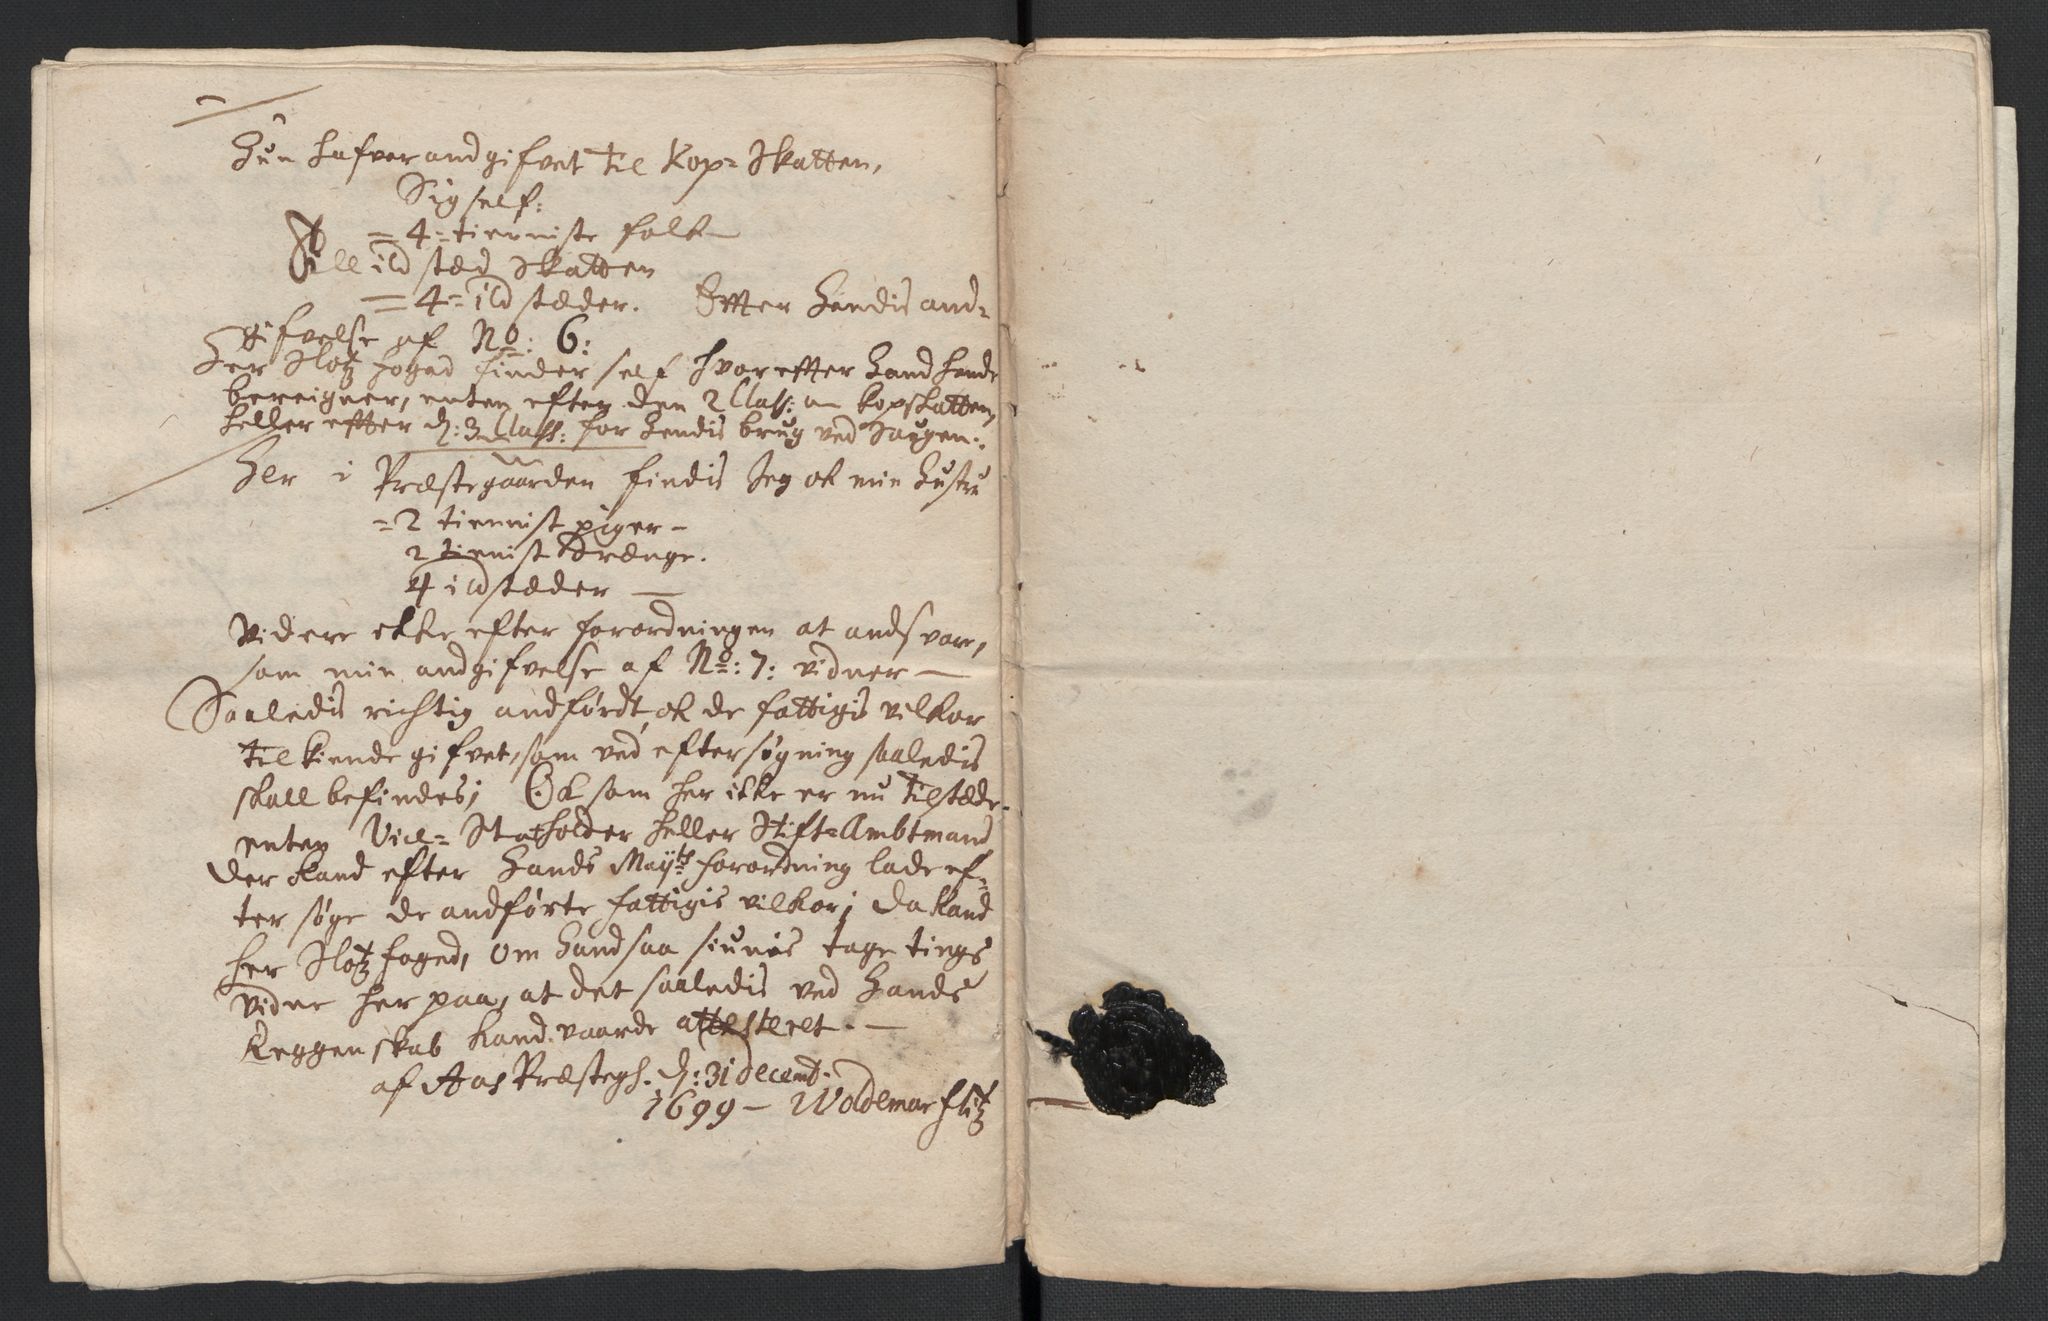 Hun hafver andgifvet til Kop= Skatten,
Sig self:
= 4= tienniste folk
Till ild stæd Skatten
= 4= ild stæder. Efter Hendis and=
gifvelse af No: 6:
Her Slotz foged finder self hvor efter Hand Hende
bereigner, enten efter den 2 Class: a kopskatten,
heller efter d: 3 Class: for Hendis brug ved Saugen.
Her i Præstegaarden findis Jeg ok min Hustru
= 2 tiennist piger -
2 tienist drænge.
4 ildstæder -
Videre ekke efter forordningen at andsvare,
som min andgifvelse af No: 7: vidner -
Saaledis richtig andfördt, ok de fattigis vilkor
til kiende gifvet, som ved eftersøgning saaledis
skall befindes; Ok som her ikke er nu tilstæde
enten Vice= Statholder heller Stift= Ambtmand
der kand efter Hands Mayts forordning lade ef=
ter søge de andførte fattigis vilkor; da kand
her Slotz foged, om Hand saa siunis tage tings
vidne her paa, at det saaledis ved Hands
Reggenskab kand vaarde attesteret. -
af Aas Præstegh. d: 31 decemb.
1699 - Woldemar flitz